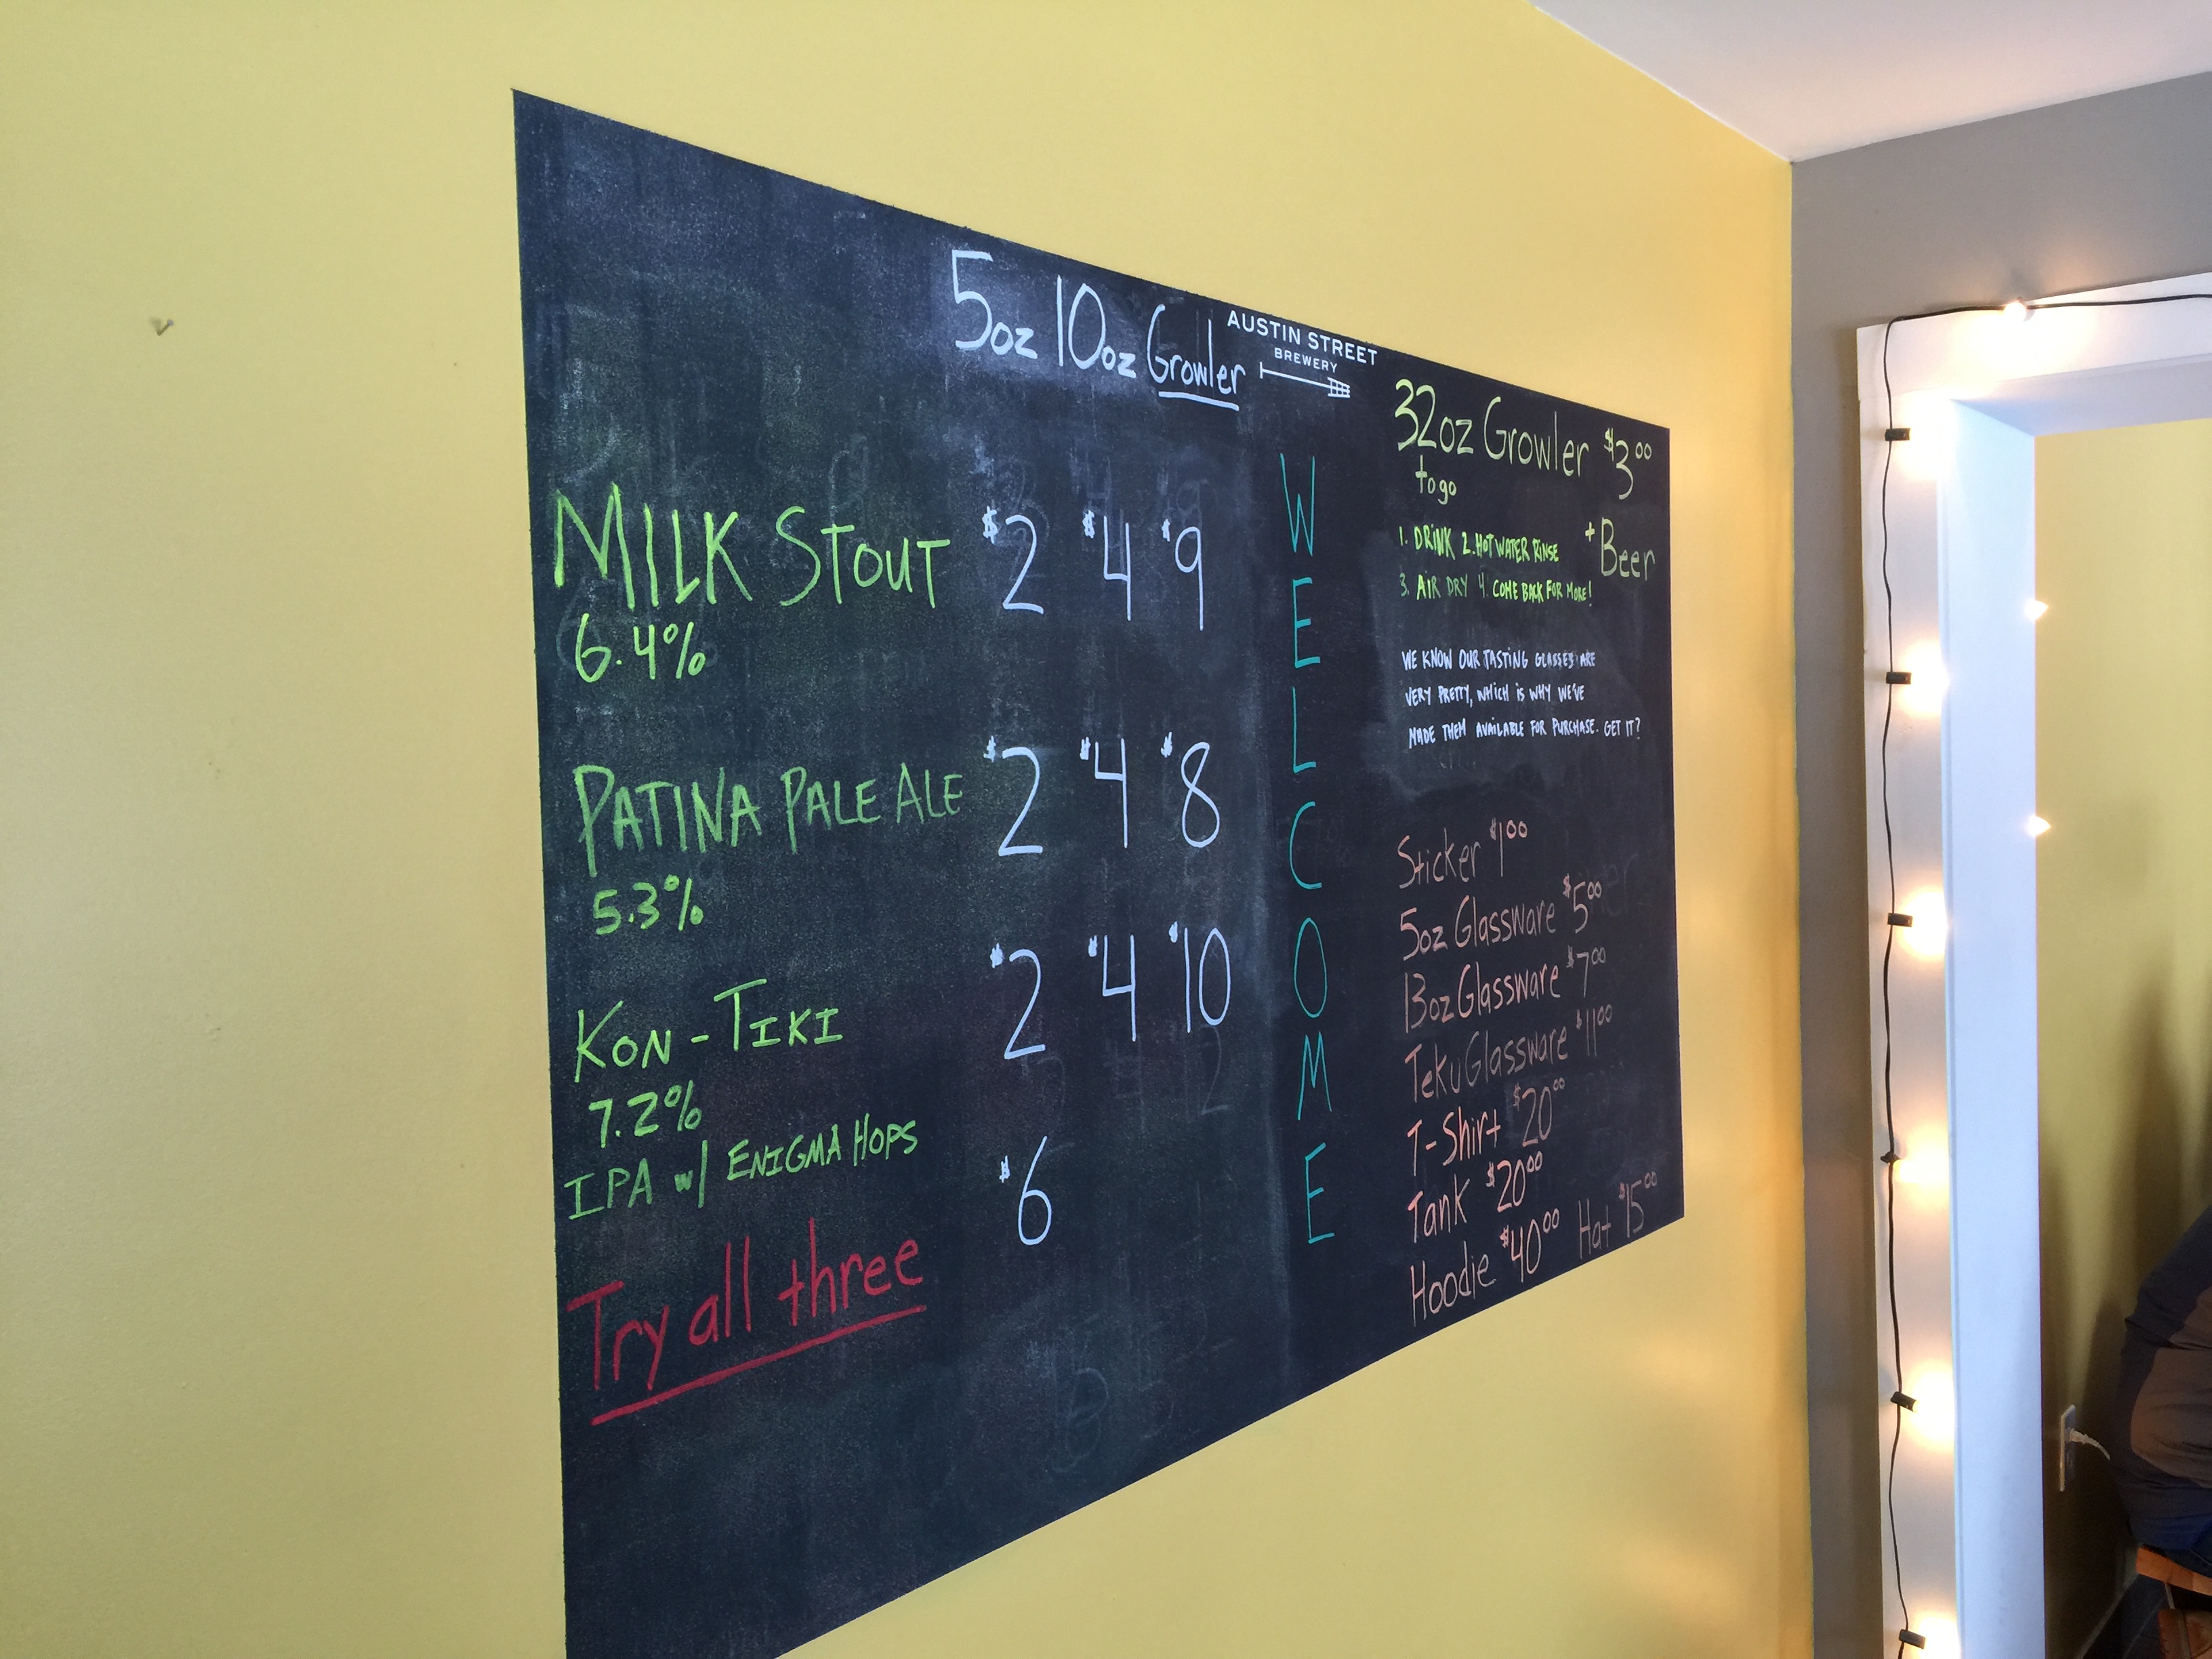 5oz 10oz Growler
MILK STOUT $2 $4 $9
6.4%
PATINA PALE ALE $2 $4 $8
5.3%
KON-TIKI $2 $4 $10
7.2%
IPA w/ ENIGMA HOPS
Try all three $6
AUSTIN STREET
BREWERY
WELCOME
32oz Growler $3.00
to go
+ Beer
1. DRINK 2. HOT WATER RINSE
3. AIR DRY 4. COME BACK FOR MORE!
WE KNOW OUR TASTING GLASSES ARE
VERY PRETTY, WHICH IS WHY WE'VE
MADE THEM AVAILABLE FOR PURCHASE. GET IT?
Sticker $1.00
5oz Glassware $5.00
13oz Glassware $7.00
Teku Glassware $11.00
T-Shirt $20.00
Tank $20.00
Hoodie $40.00 Hat $15.00